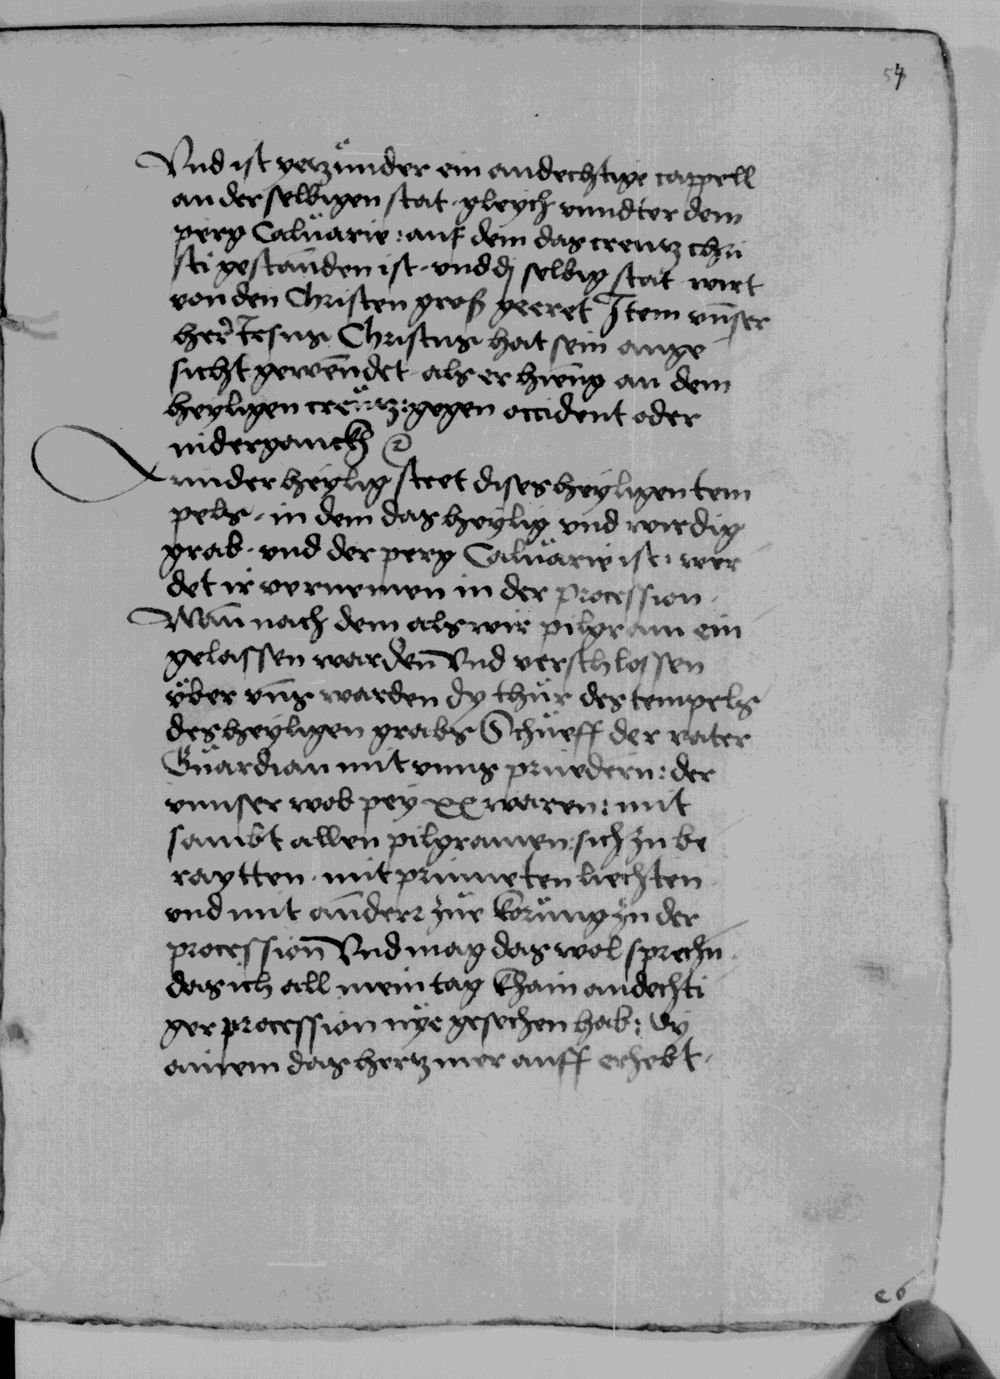 54
Vnd ist yetzůnder ein andechtige cappell
an der selbigen stat · gleych vnndter dem
perg Caluarie : auf dem das creutz chri
sti gestannden ist · vnd dj selbig stat wirt
von den Christen groß geeret Item vnnser
herr Jesus Christus hat sein ange
sicht gewendet als er hieng an dem
heyligen creutz : gegen occident oder
nidergannckh
ander heylig stett dises heyligen tem
pels · in dem das heylig vnd wirdig
grab · vnd der perg Caluarie ist : wer
det ir vernemen in der procession ·
Wann nach dem als wir pilgram ein
gelassen warden Vnd verschlossen
über vns warden dy thür des tempels
des heyligen grabs Schueff der vater
Guardian mit vnns prüedern : der
vnnser wol pey xx waren : mit
sambt allen pilgramen : sich zu be
raytten · mit prinneten liechten
vnd mit annderr zue korung zu der
procession Vnd mag das wol sprechn
das ich all mein tag khain andechti
ger procession nye gesechen hab : dy
ainem das hertz mer auff erhebt ·
e6